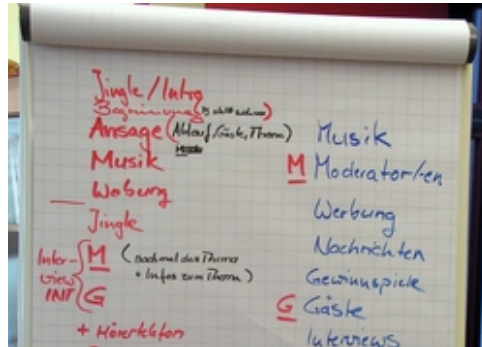 Jingle/Intro
Begrüssung
Ansage (Ablauf, Gäste, Thema)
Musik
Webung
Jingle
Inter-
view
INT
M (nochmal das Thema
+ Infos zum Thema)
G
+ Hörertelefon
Musik
M Moderator/-en
Werbung
Nachrichten
Gewinnspiele
G Gäste
Interviews